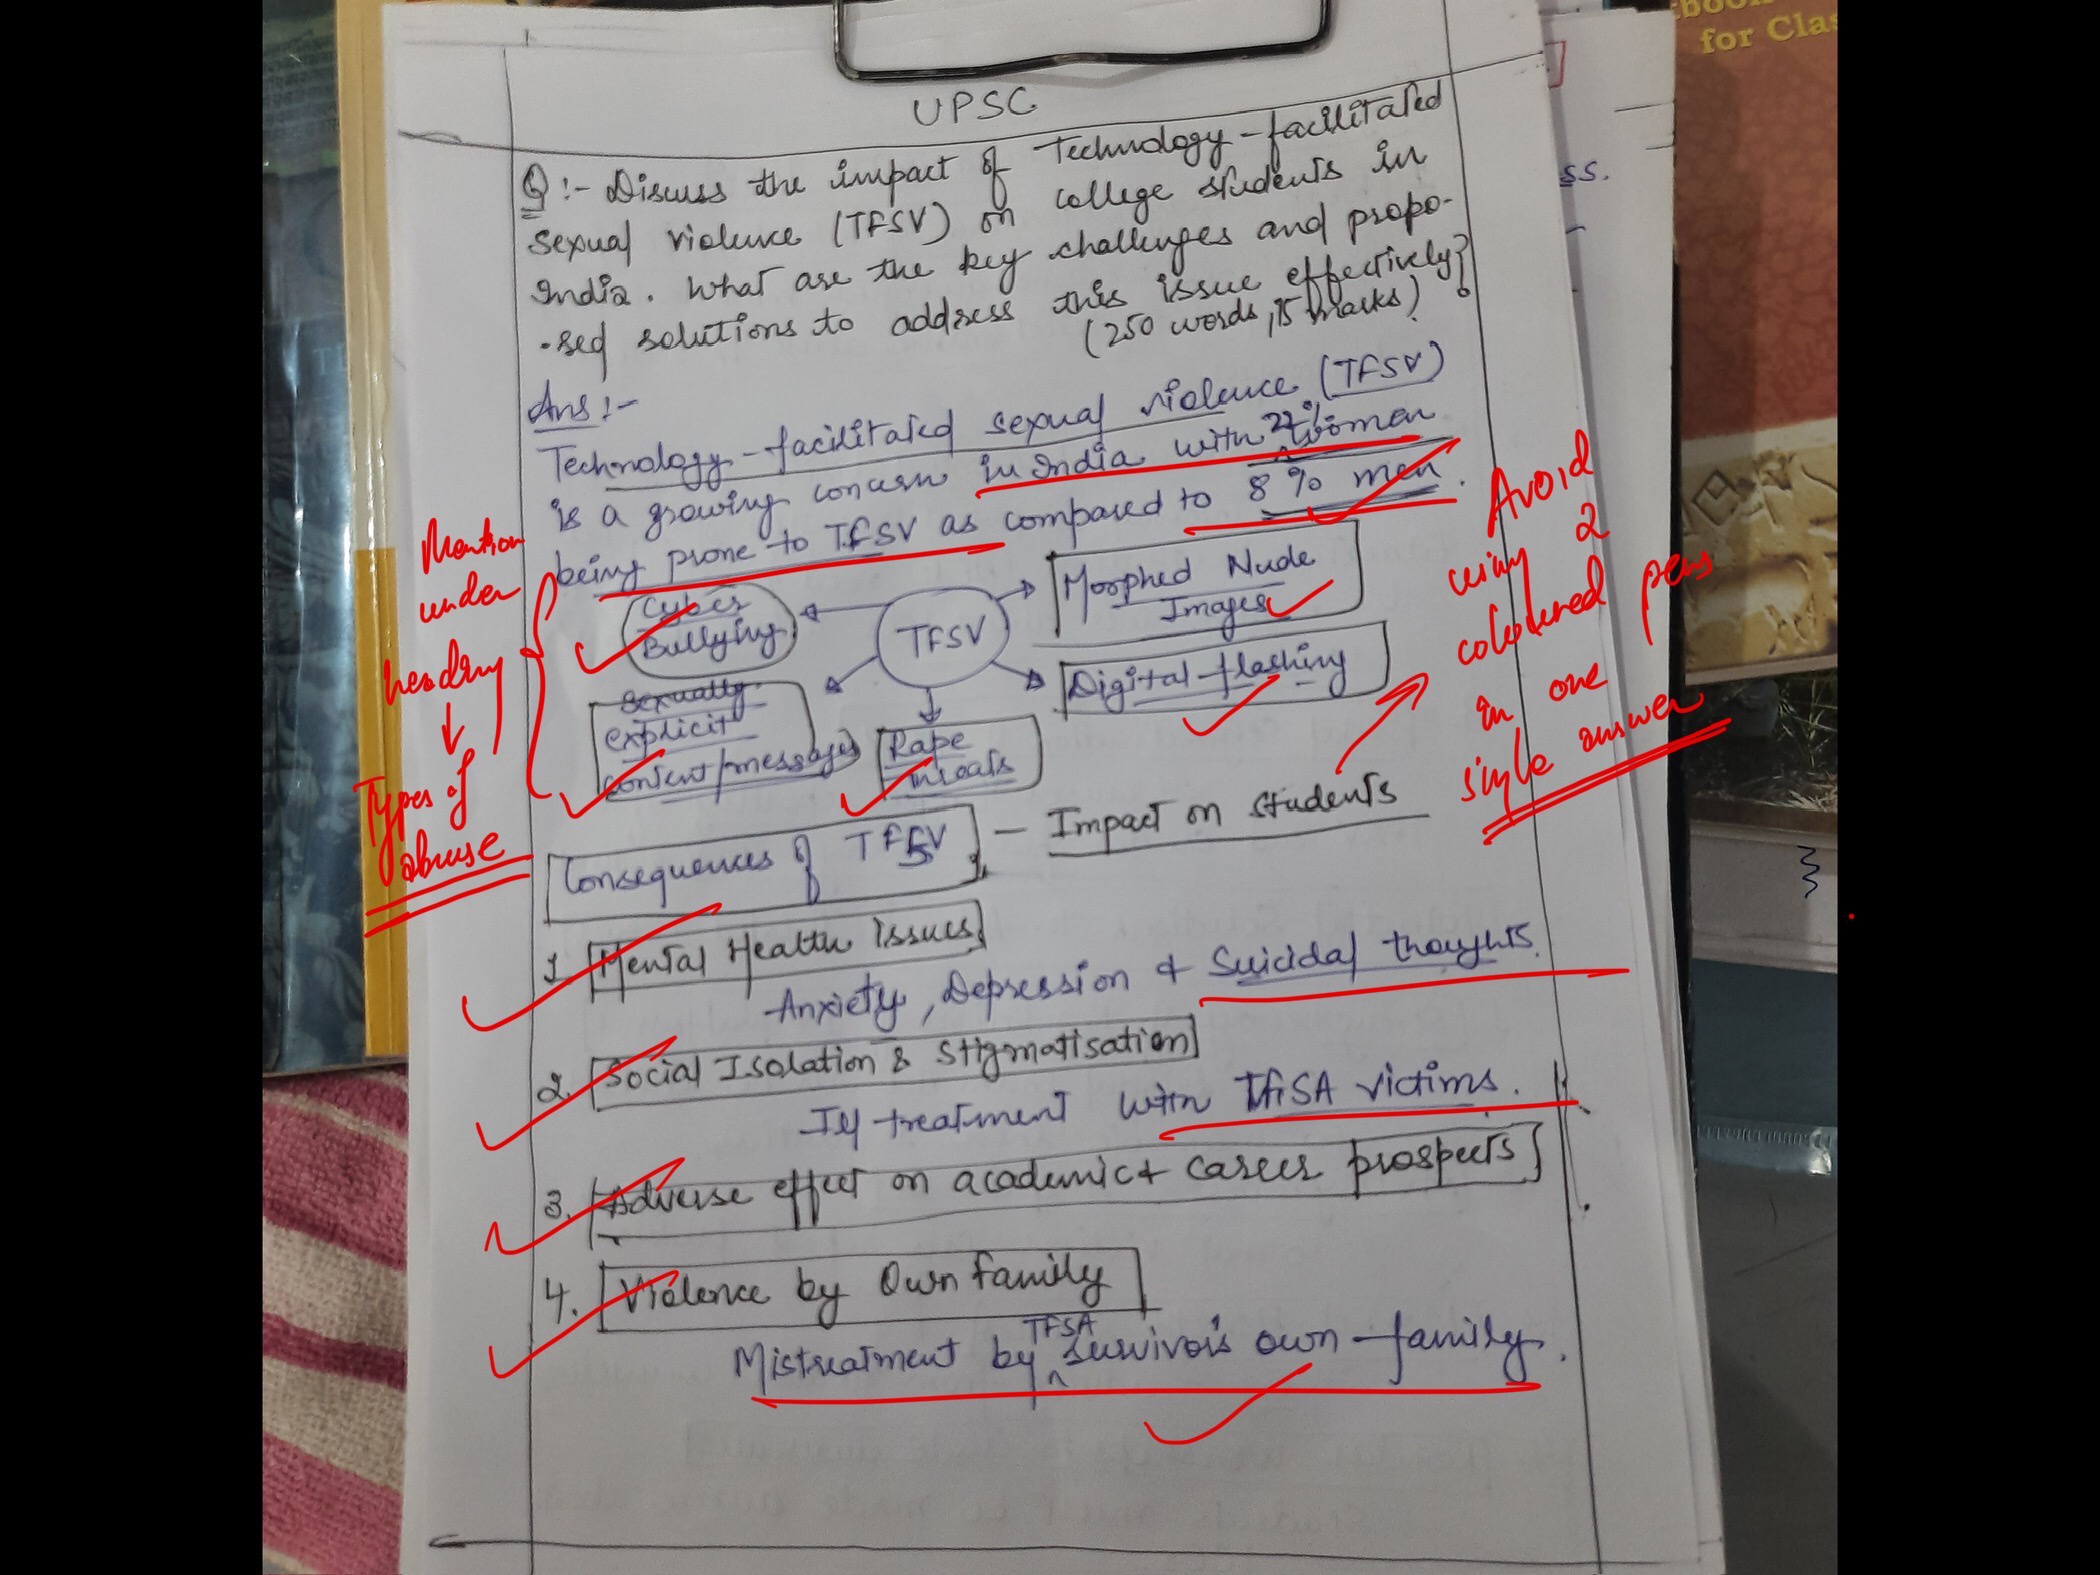 tbook
for Clas
UPSC
Q:- Discuss the impact of Technology-facilitated
sexual violence (TFSV) on college students in
India. What are the key challenges and propo-
-sed solutions to address this issue effectively?
(250 words, 15 marks)
Ans:-
Technology-facilitated sexual violence (TFSV)
is a growing concern in India with 22% women
being prone to TFSV as compared to 8% men.
Mention
under
heading
↓
Types of
abuse
Avoid
using 2
coloured pens
in one
single answer
Cyber
Bullying
TFSV
Morphed Nude
Images
Digital flashing
Sexually
explicit
content/messages
Rape
threats
Consequences of TFSV - Impact on Students
1. Mental Health issues
Anxiety, Depression & Suicidal thoughts.
2. Social Isolation & Stigmatisation
Ill treatment with TFSA victims.
3. Adverse effect on academic & career prospects
4. Violence by Own family
Mistreatment by TFSA survivor's own family.
ss.